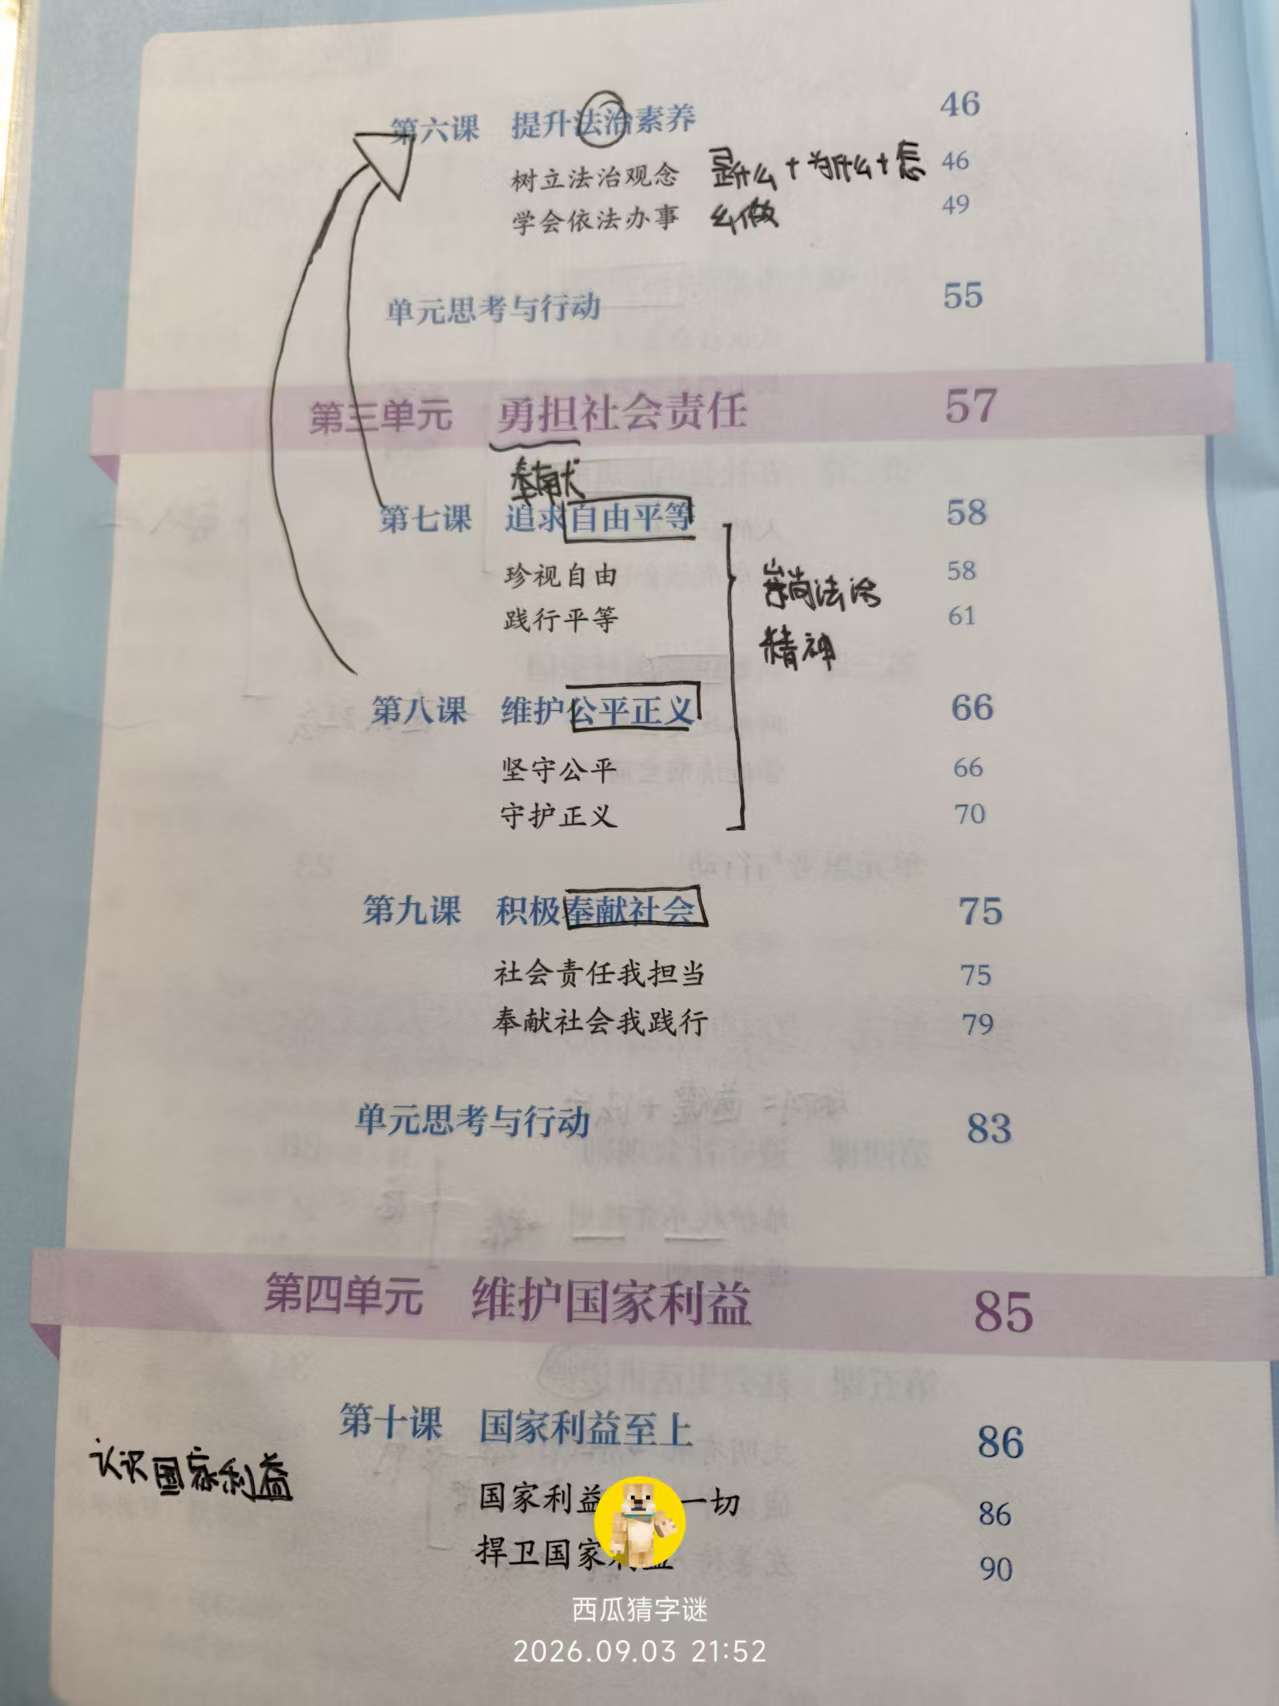 第六课 提升法治素养 46
树立法治观念 是什么+为什么+怎 46
学会依法办事 么做 49
单元思考与行动 55
第三单元 勇担社会责任 57
奉献
第七课 追求自由平等 58
珍视自由 58
践行平等 61
崇尚法治
精神
第八课 维护公平正义 66
坚守公平 66
守护正义 70
第九课 积极奉献社会 75
社会责任我担当 75
奉献社会我践行 79
单元思考与行动 83
第四单元 维护国家利益 85
第十课 国家利益至上 86
认识国家利益
国家利益 一切 86
捍卫国家利益 90
西瓜猜字谜
2026.09.03 21:52